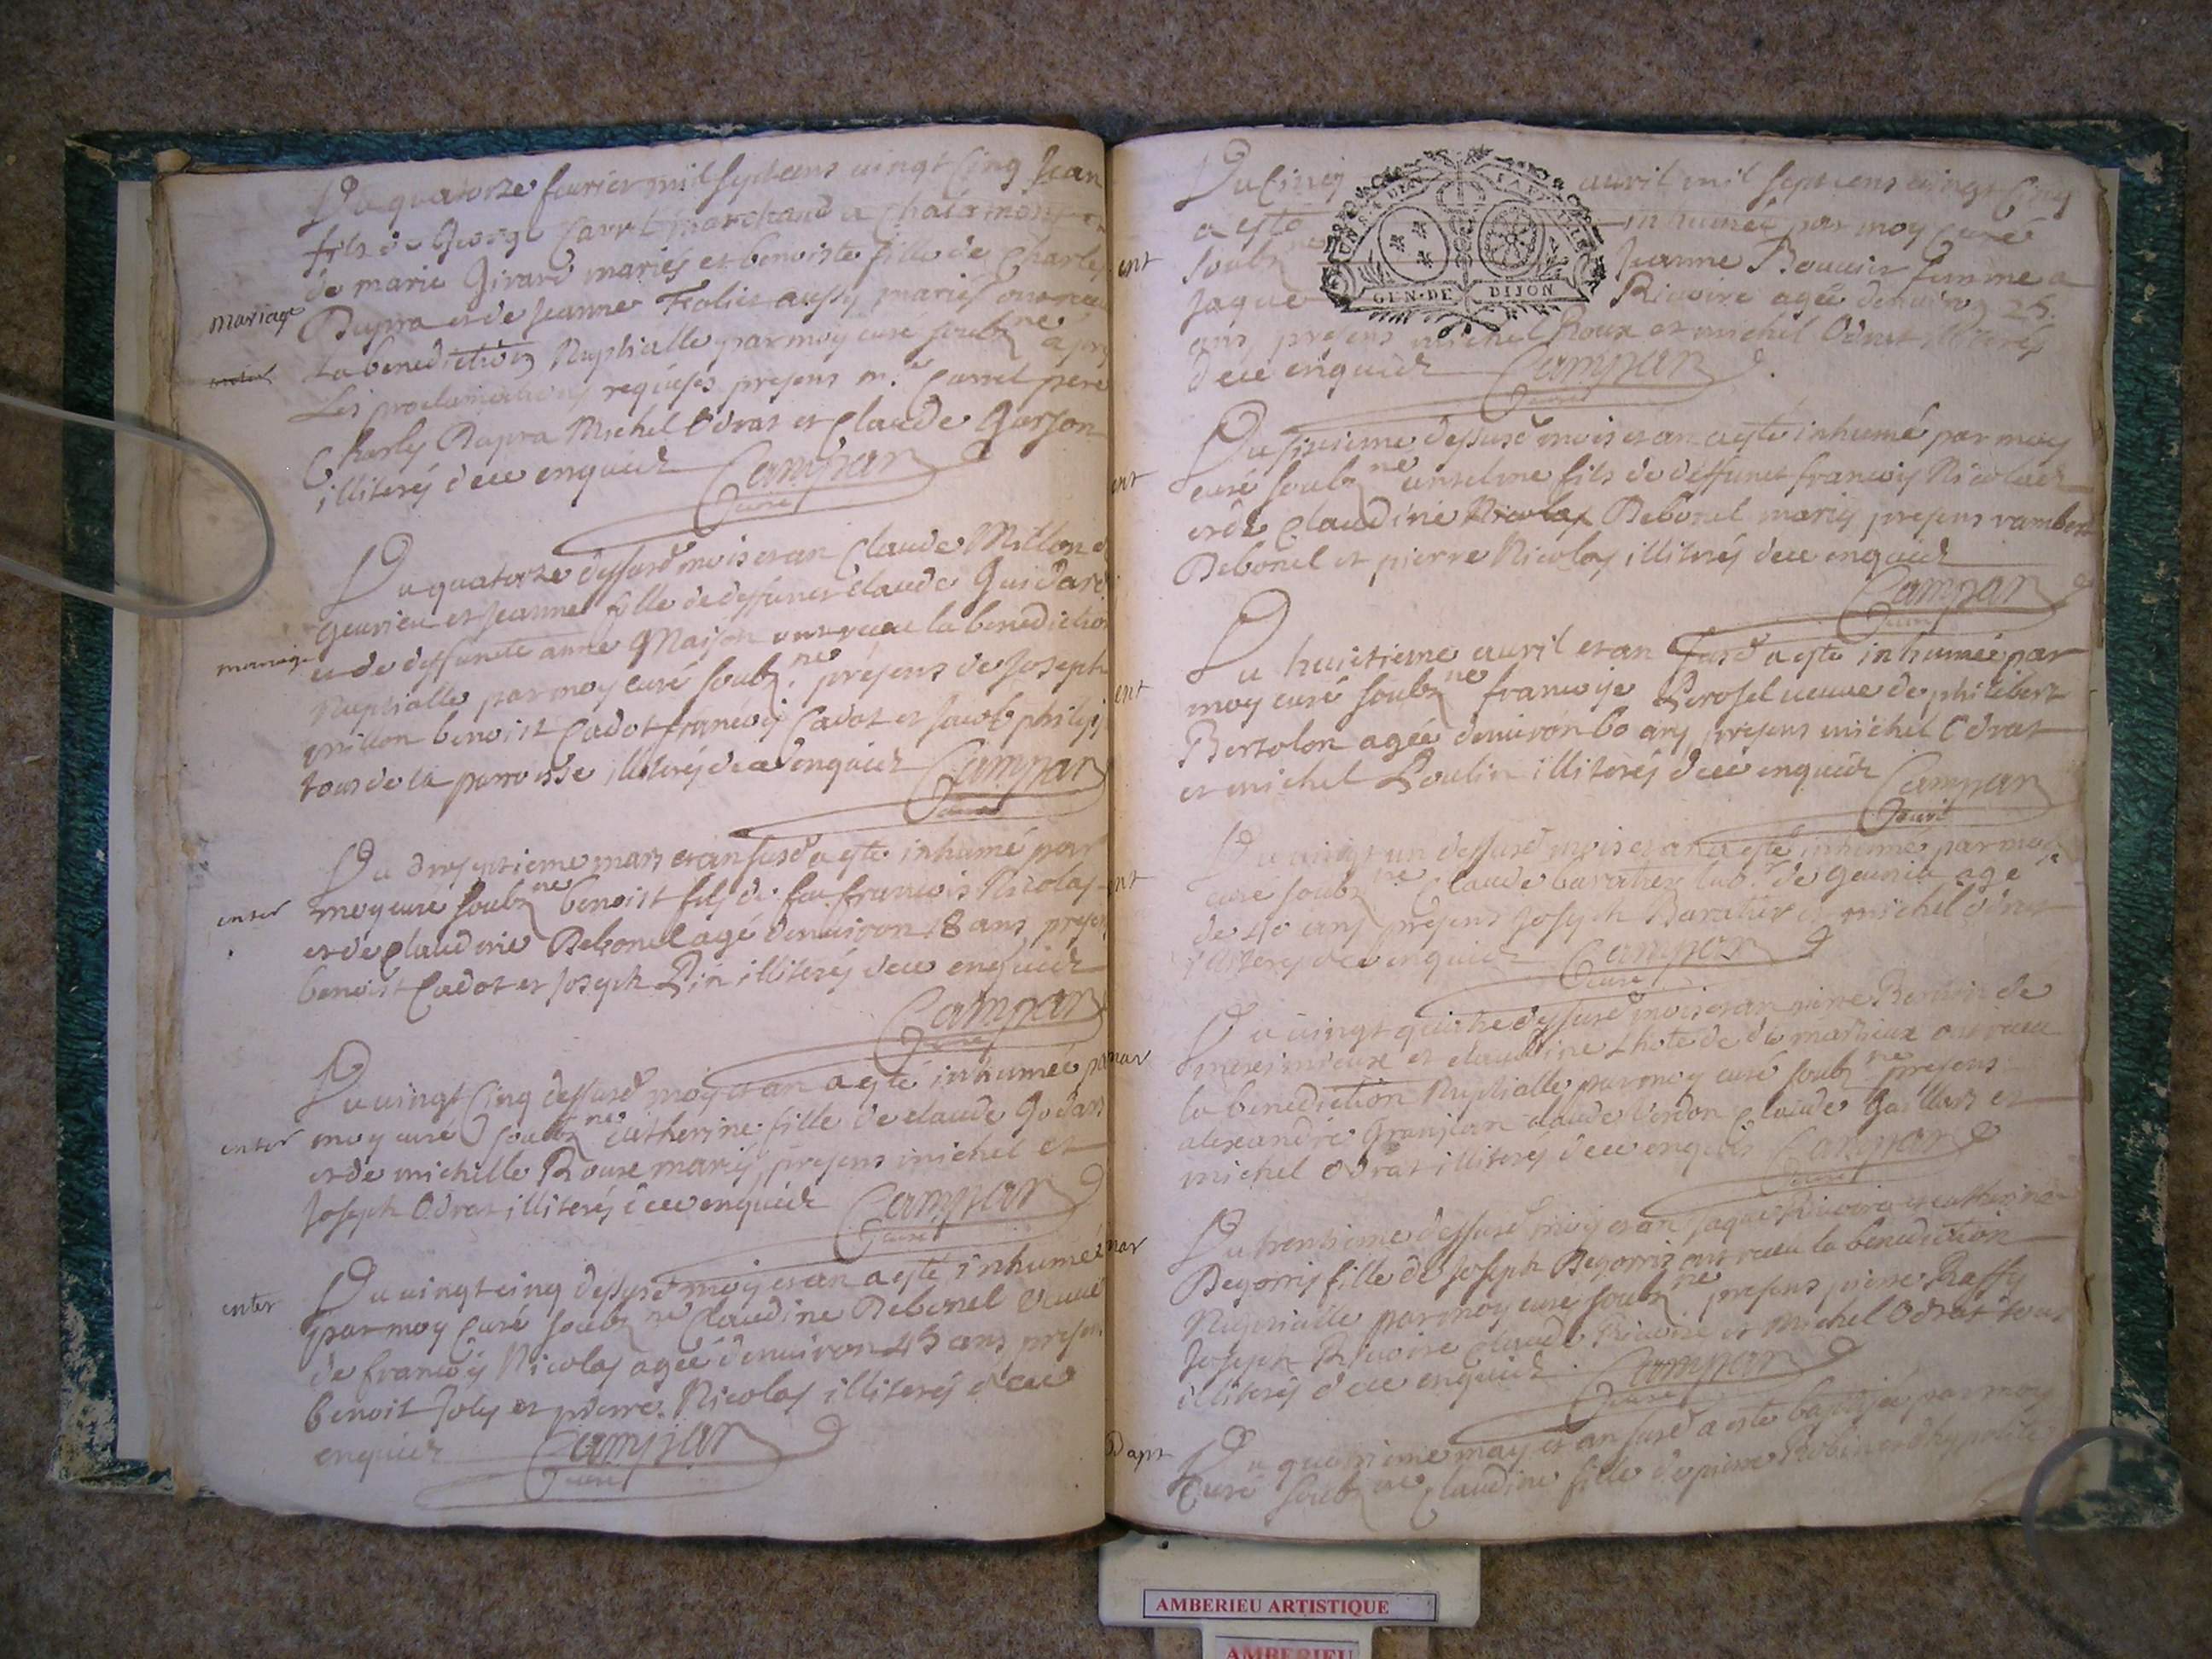 Du quatorze feurier mil sept cens vingt cinq Jean
fils de George Carrel marchand a Chalamont et
de marie Girard mariés et benoiste fille de Charles
mariage
Dupra et de Jeanne Folliet aussy mariés ont receu
la benediction Nuptialle par moy curé soubz.ne apres
enter
Les proclamations requises presens m.e Carrel pere
Charles Dupra Michel Odras et Claude Garson
illiterés dece enquis Campan
Curé
Du quatorze dessusd mois et an Claude Millon de
et Jeanne fille de deffunct claude Guidard
et de deffuncte anne Maison ont receu la benediction
mariage
Nuptialle par moy curé soubz.ne presens de Joseph
millon benoist Cadot francois Cadot et Jacob philipp
tous de la parroisse illiterés dece enquis Campan
Curé
Du mars et an susd a este inhumé par
enter
moy curé soubz.ne benoist fils de feu francois Nicolas
et de claudine Debonel agé denuiron 18 ans presens
benoist Cadot et Joseph Pin illiterés dece enquis
Campan
Curé
Du vingt cinq dessusd mois et an a esté inhumée par
enter
moy curé soubz.ne catherine fille de claude Godard
et de michelle Roux mariés presens michel et
Joseph Odras illiterés dece enquis Campan
Curé
Du vingt cinq dessusd mois et an a esté inhumée
enter
par moy Curé soubz.ne Claudine Debonel veuue
de francois Nicolas agée denuiron 45 ans presens
benoit Joly et pierre Nicolas illiterés dece
enquis Campan
Curé
Du Cinq avril mil sept cens vingt Cinq
a esté inhumée par moy Curé
ent
soubz.ne Jeanne Bouuier femme a
GEN·DE DIJON
Jaque Riuoire agée denuiron 25
ans presens michel Roux et michel Odras illiterés
dece enquis Campan
Curé
Du sixieme dessusd mois et an a esté inhumé par moy
ent
curé soubz.ne anselme fils de deffunct francois Nicolas
et de Claudine Debonel mariés presens rambert
Debonel et pierre Nicolas illiterés dece enquis
Campan
Curé
Du huictieme auril et an susd a este inhumée par
ent
moy curé soubz.ne francoise Perosel ueuue de philibert
Bertolon agée denuiron 60 ans presens michel Odras
et michel Poulin illiterés dece enquis Campan
Curé
Du vingt un dessusd mois et an a esté inhumé par moy
ent
curé soubz.ne Claude baratier lab.r de agé
de 40 ans presens Joseph Baratier et michel Odras
illiterés dece enquis Campan
Curé
Du vingt quatre dessusd mois et an de
mar
et claudine ont receu
la benediction Nuptialle par moy curé soubz.ne presens
alexandre Granjean claude Verdon claude Gaillard et
michel Odras illiterés dece enquis Campan
Curé
Du trentieme dessusd mois et an Jaque Riuoire et catherine
mar
Degorris fille de Joseph Degorris ont receu la benediction
Nuptialle par moy curé soubz.ne presens pierre Raffy
Joseph Riuoire claude Riuoire et michel Odras tous
illiterés dece enquis Campan
Curé
Bapt
Du quatrieme may et an susd a este baptisée par moy
Curé soubz.ne Claudine fille de pierre
AMBERIEU ARTISTIQUE
AMBERIEU